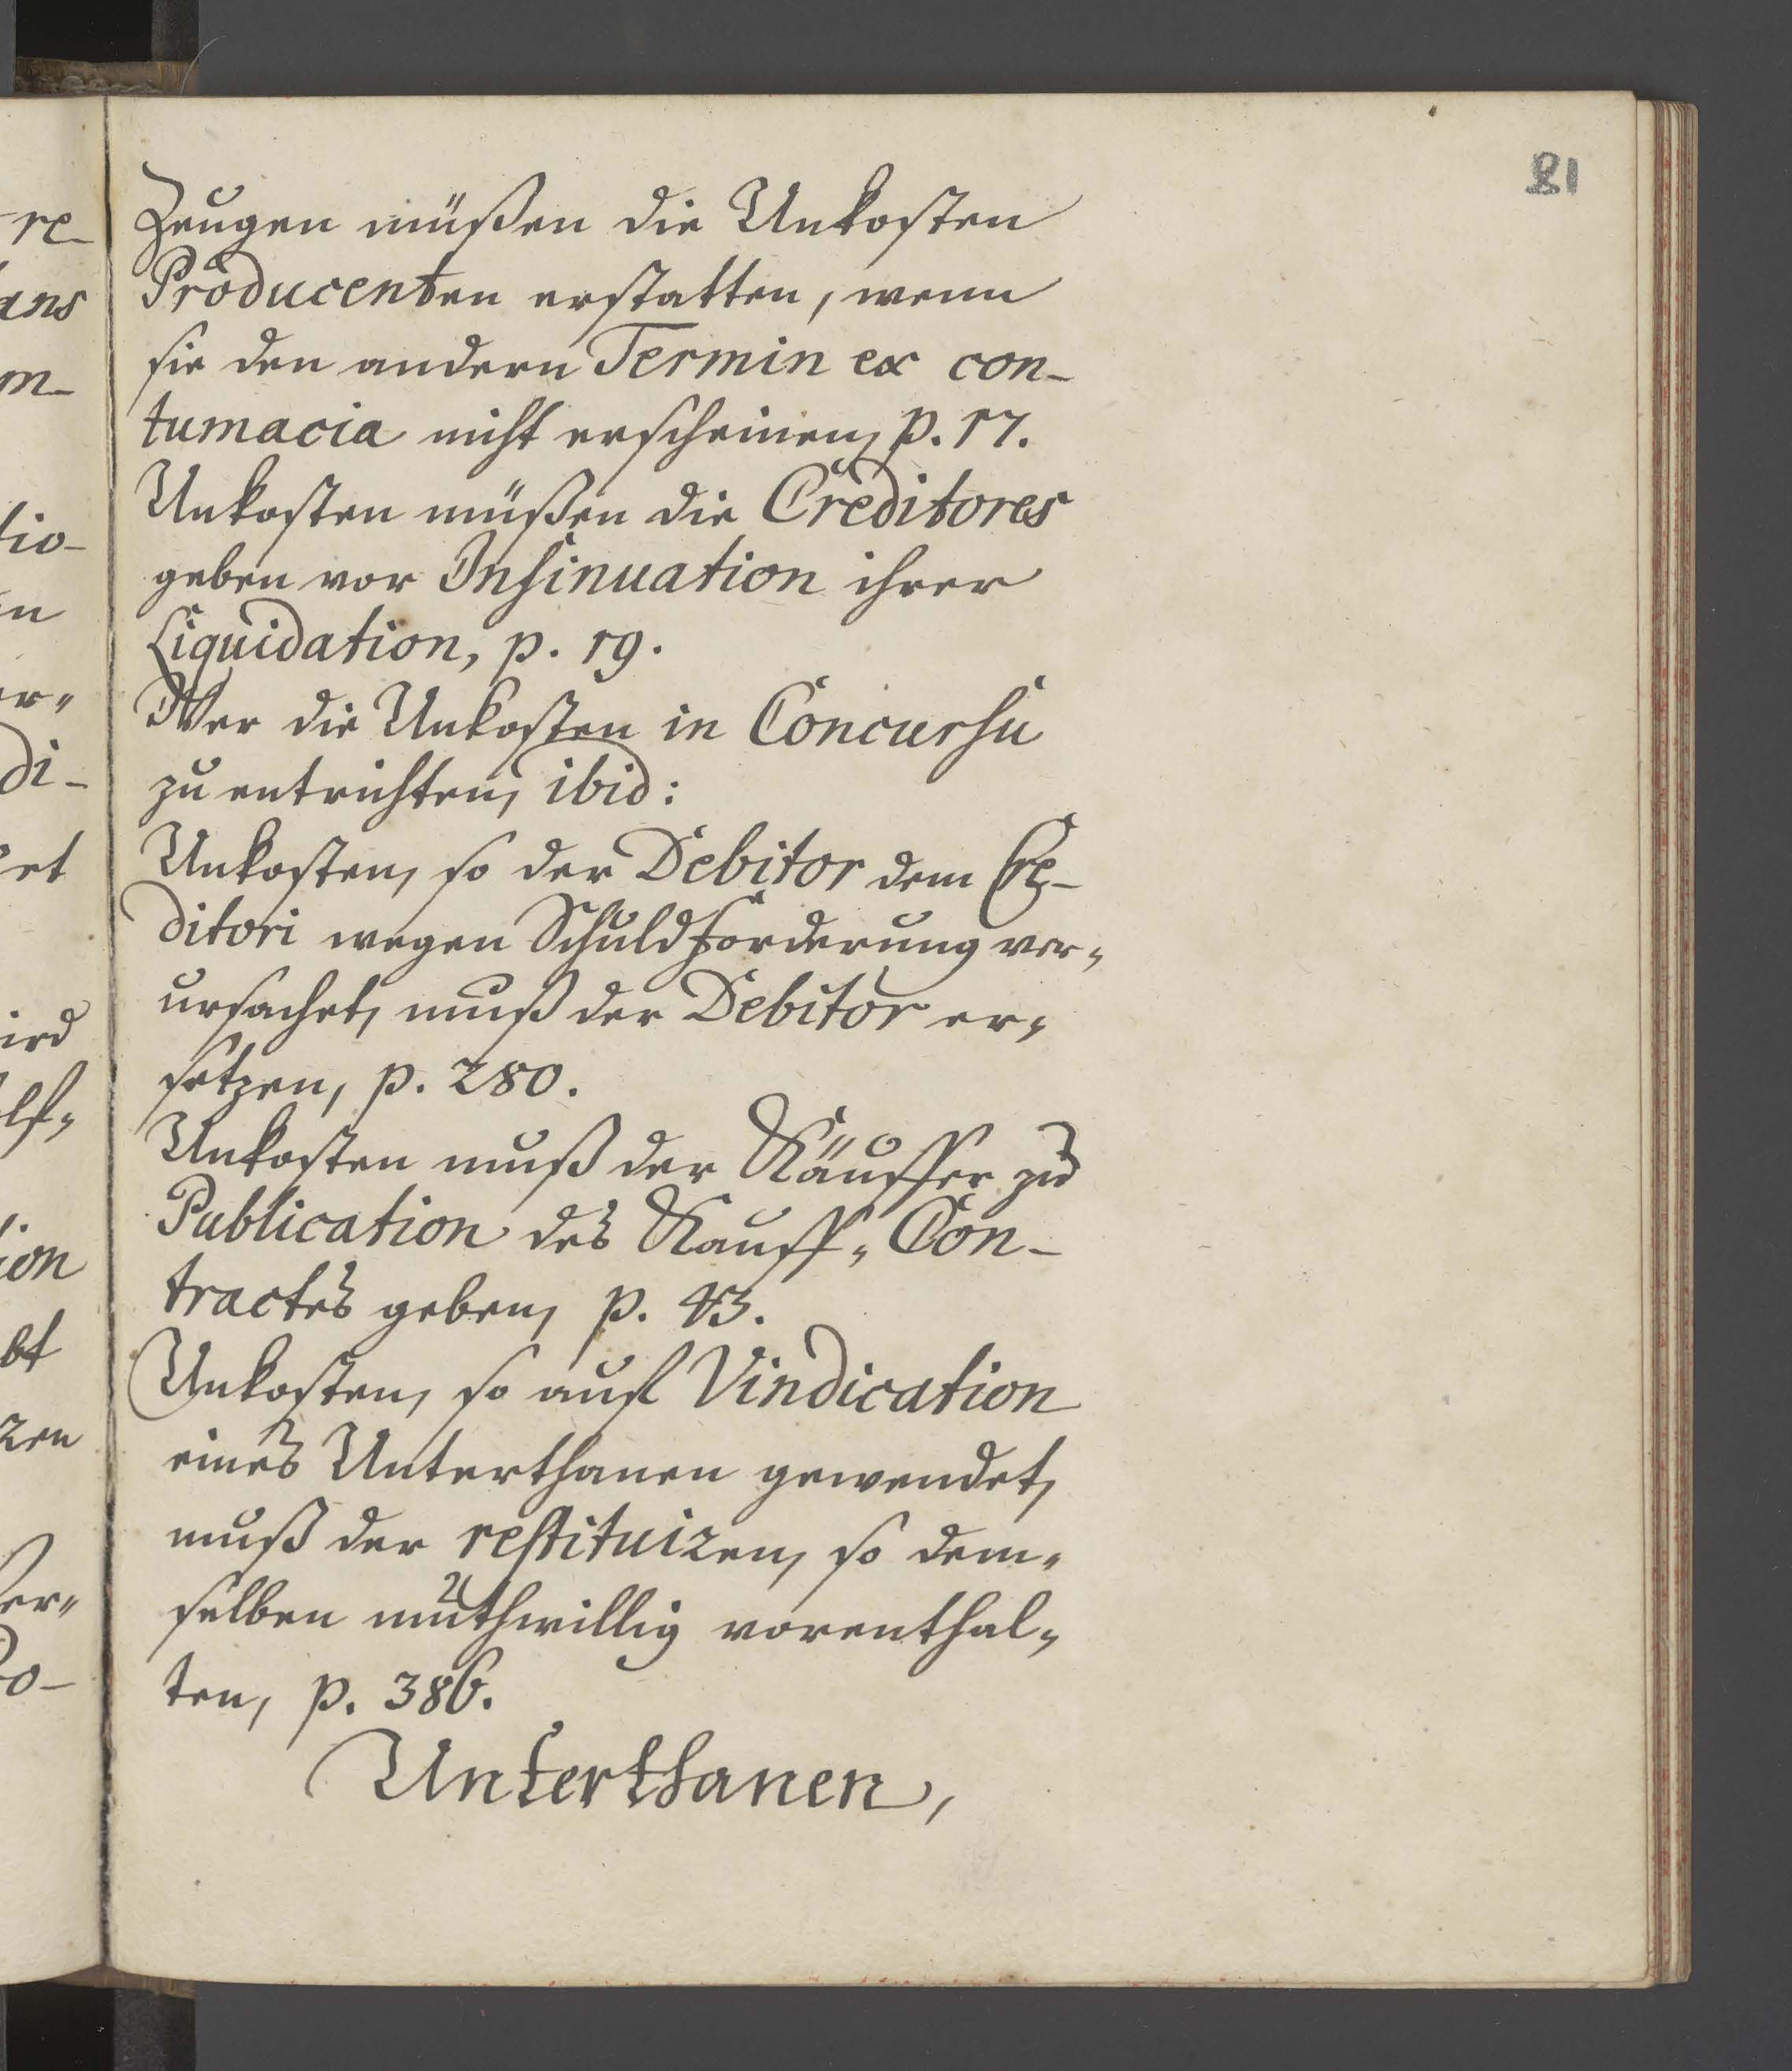 81
Zeugen müßen die Unkosten
Producenten erstatten, wenn
sie den andern Termin ex con-
tumacia nicht erscheinen, p. 17.
Unkosten müßen die Creditores
geben vor Insinuation ihrer
Liquidation, p. 19.
Wer die Unkosten in Concursu
zu entrichten, ibid:
Unkosten, so der Debitor dem Cre-
ditori wegen Schuldforderung ver-
ursachet, muß der Debitor er-
setzen, p. 280.
Unkosten muß der Käuffer zu
Publication des Kauff-Con-
tractes geben, p. 43.
Unkosten, so auf Vindication
eines Unterthanen gewendet,
muß der restituiren, so dem-
selben muthwillig vorenthal-
ten, p. 386.
Unterthanen,